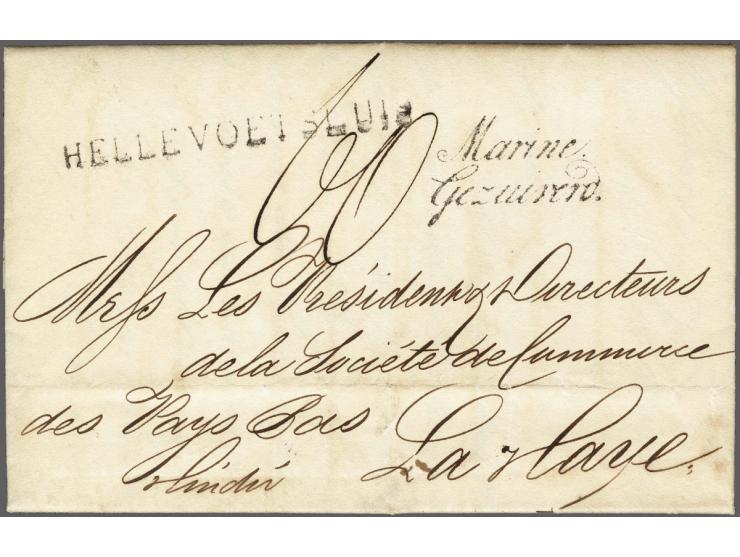 HELLEVOETSLUIS
60
Marine.
Gezuiverd.
Mess Les Présidents & Directeurs
de la Société de Commerce
des Pays Bas
La Haye.